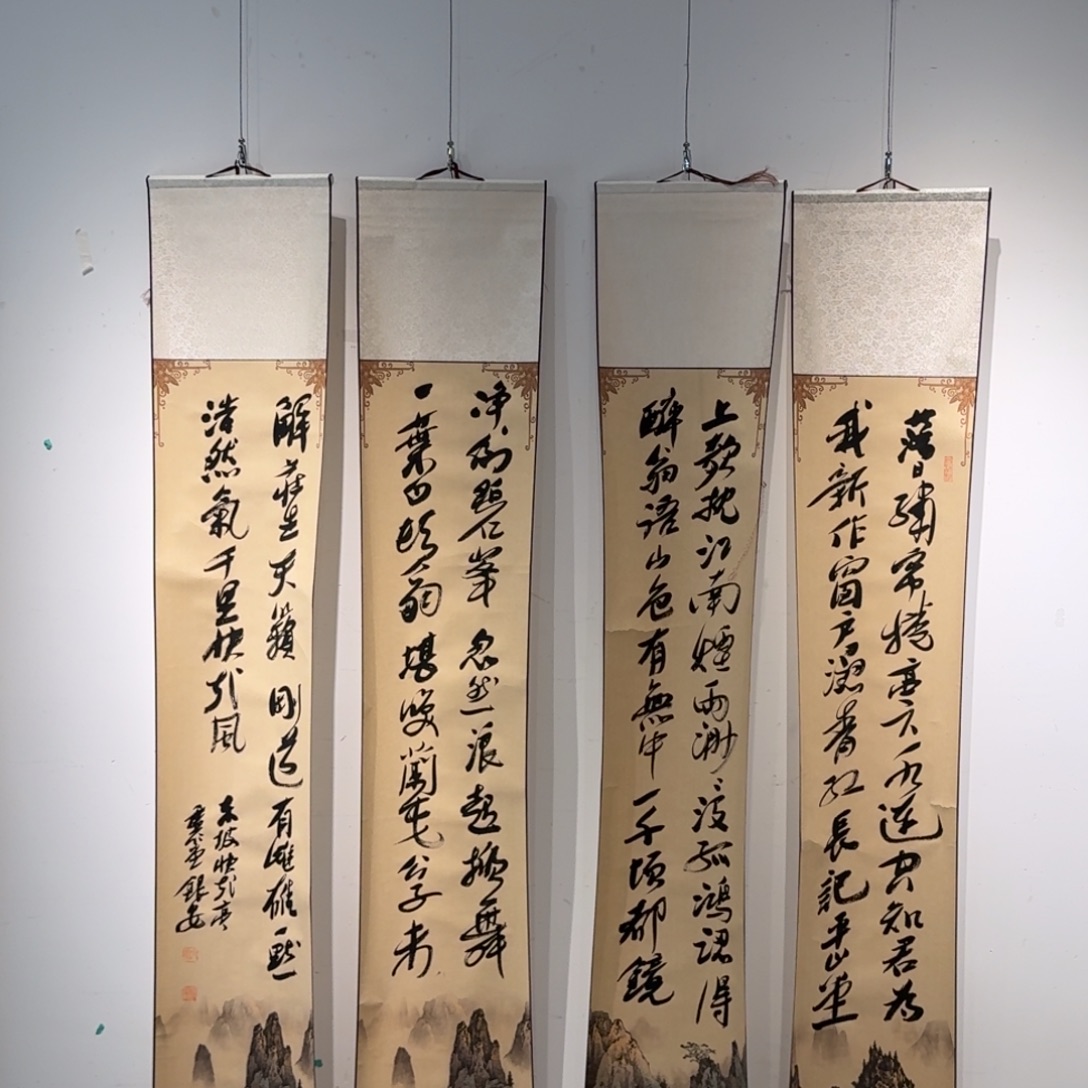 落日繡帘捲亭下水連空知君為
我新作窗戶濕青紅長記平山堂
上欹枕江南煙雨渺渺沒孤鴻認得
醉翁語山色有無中一千頃都鏡
净倒碧峯忽然浪起掀舞
一葉白頭翁堪笑蘭臺公子未
解莊生天籟剛道有雌雄一點
浩然氣千里快哉風
東坡快哉亭
銀安